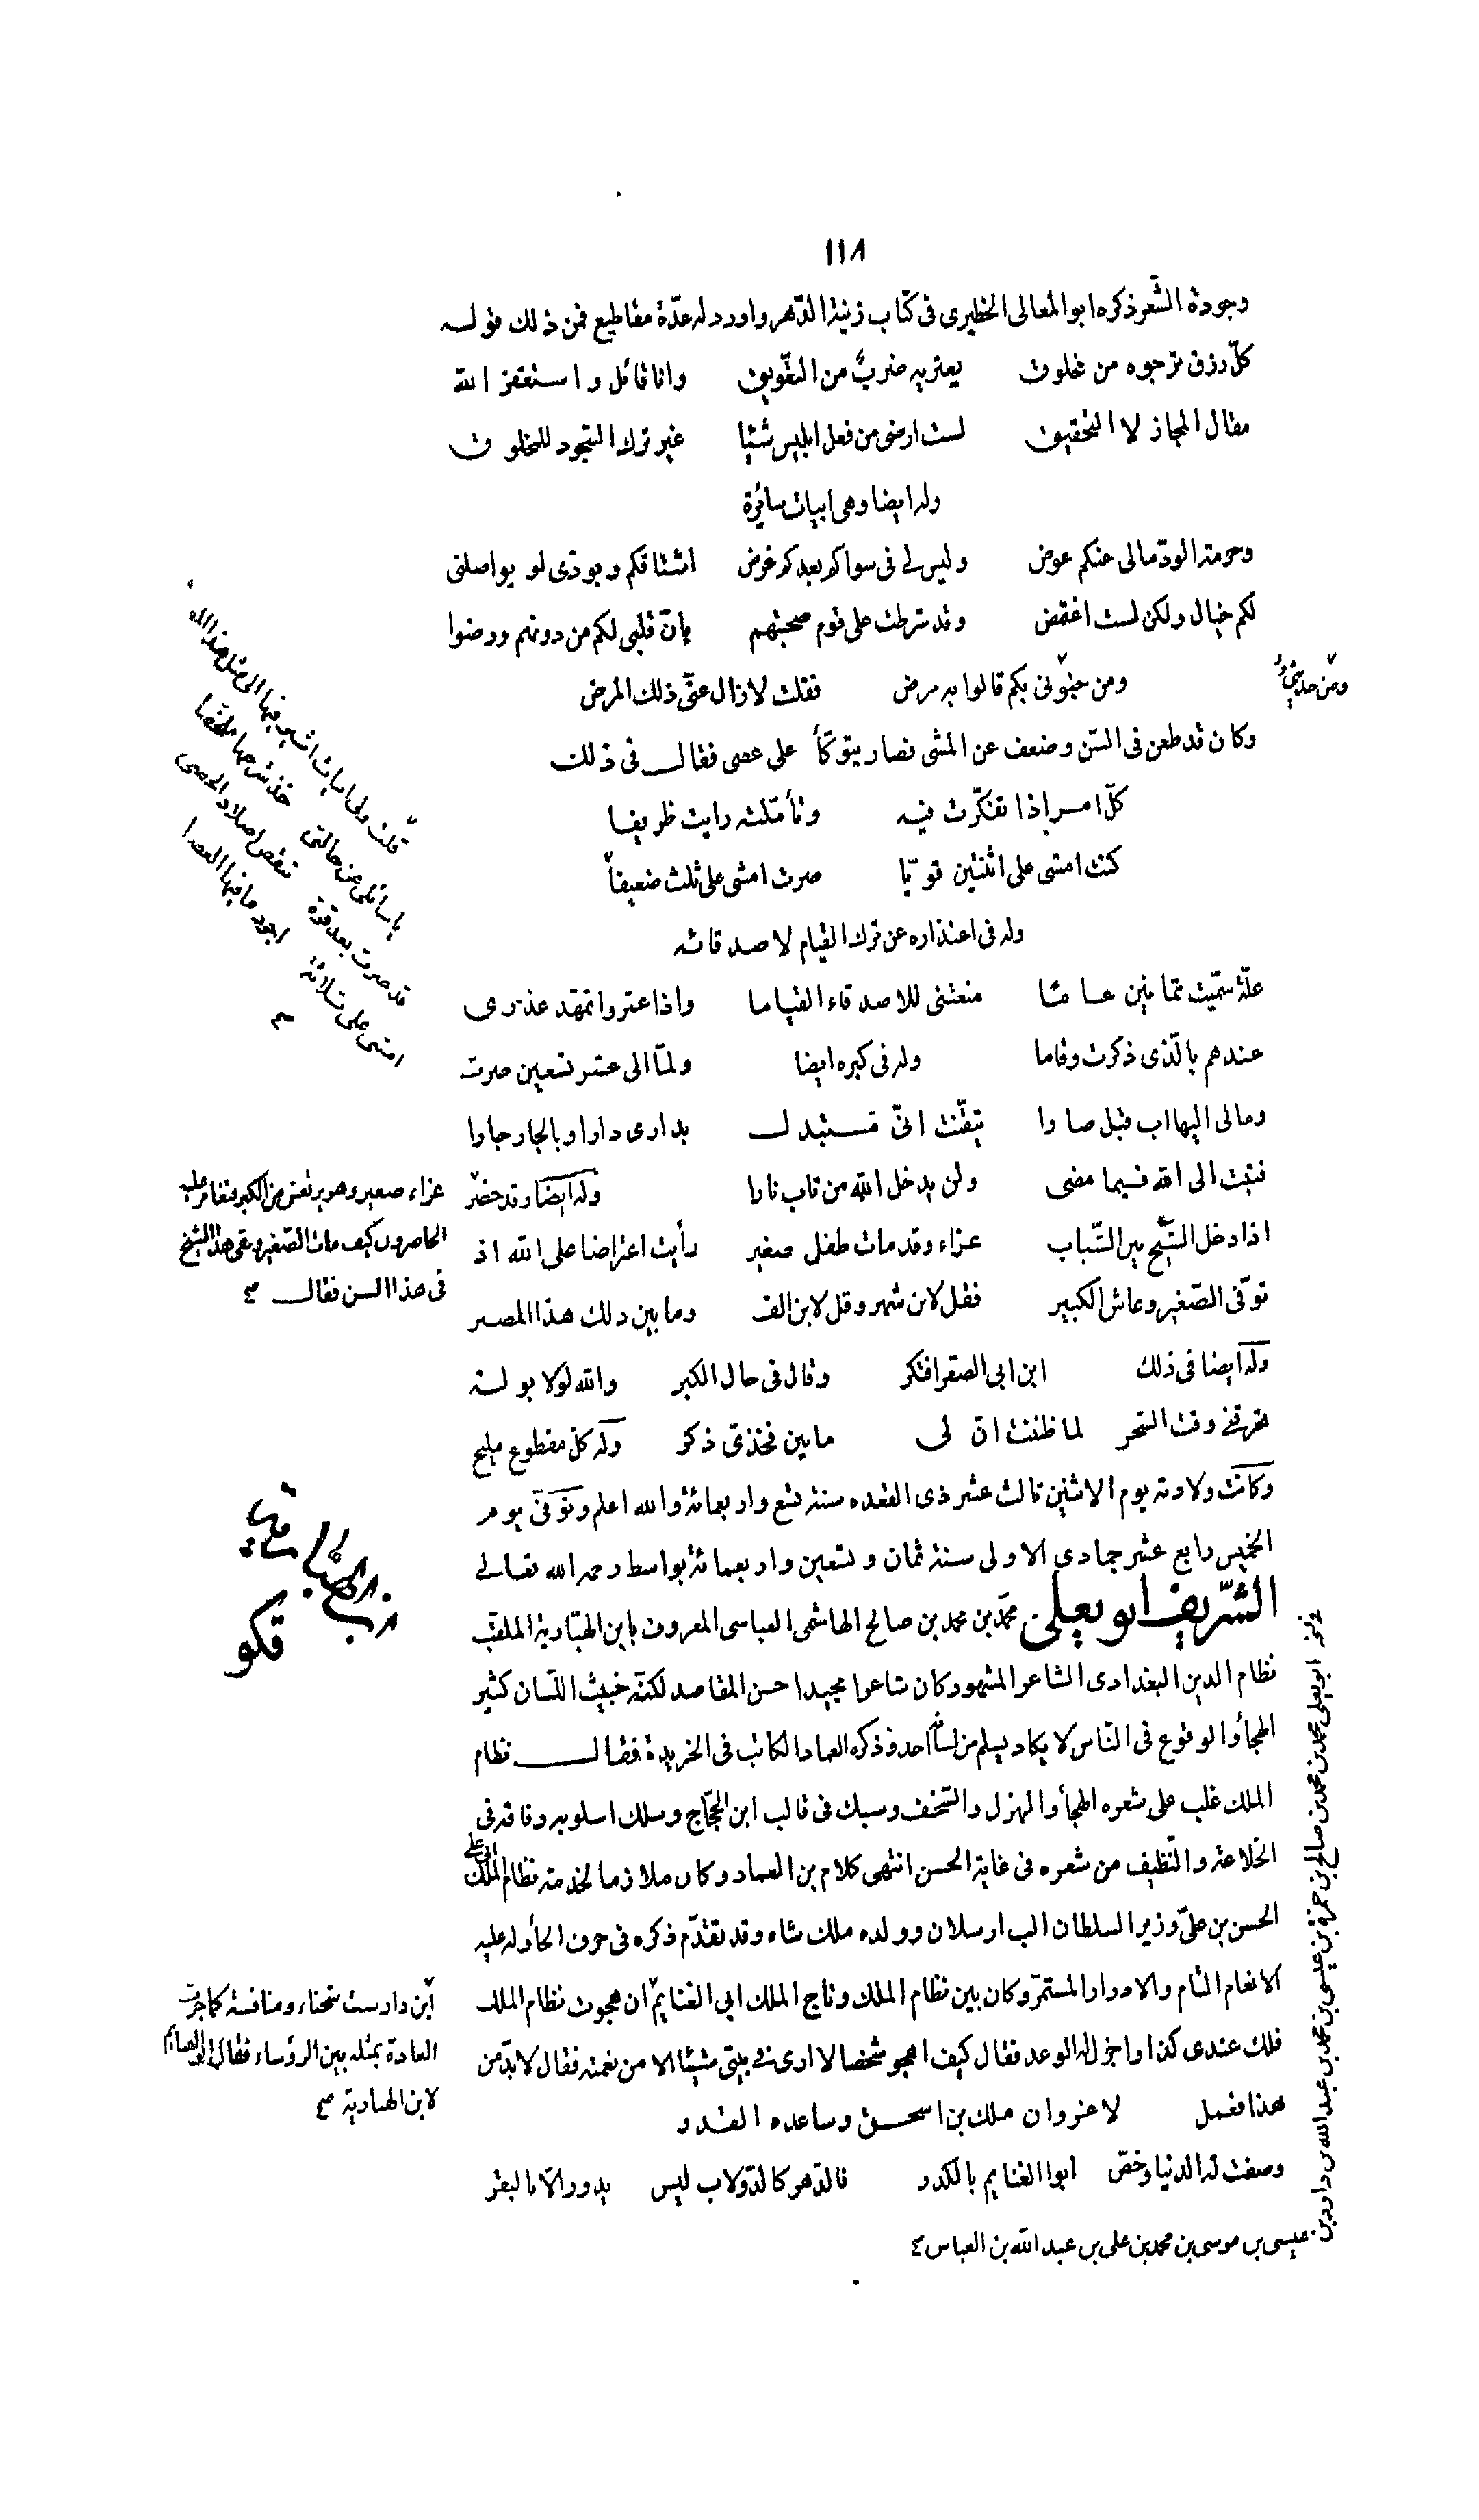 ١١٨
وجودة الشعر ذكره ابو المعالى الخطيرى فى كتاب زينة الدهر واورد له عدّة مقاطيع فمن ذلك قوله
كلّ رزق ترجوه من مخلوق يعتريه ضربٌ من التعويق وانا قائل واستغفر الله
مقال المجاز لا التحقيق لست ارضى من فعل ابليس شيئا غير ترك السجود للمخلوق
وله ايضا وهى ابيات سائرة
وحرمة الودّ مالى عنكم عوض وليس لى فى سواكم بعدكم غرض اشتاقكم وبودّى لو يواصلنى
لكم خيال ولكن لست اغتمض وقد شرطت على قوم صحبتهم بانّ قلبى لكم من دونهم ورضوا
ومن جنونى بكم قالوا به مرض فقلت لا زال عنّى ذلك المرض
ومن حديثى
وكان قد طعن فى السّن وضعف عن المشى فصار يتوكّأ على عصى فقال فى ذلك
كلّ امر اذا تفكّرت فيه وتأمّلته رايت ظريفا
كنت امشى على اثنتين قويّا صرت امشى على ثلث ضعيفاً
وله فى اعتذاره عن ترك القيام لاصدقائه
علّة سمّيت ثمانين عاما منعتنى للاصدقاء القياما واذا عمروا تمهّد عذرى
عندهم بالّذى ذكرت وقاما وله فى كبره ايضا ولمّا الى عشر تسعين صرت
ومالى اليها اب قبل صارا تيقّنت انّى مستبدل بدارى دارا وبالجار جارا
فتبت الى الله فيما مضى ولن يدخل الله من تاب نارا وله ايضا وقد حضر
اذا دخل الشيخ بين الشّباب عزاء وقد مات طفل صغير رأيت اعتراضا على الله اذ
توفّى الصّغير وعاش الكبير فقل لابن شهر وقل لابن الف وما بين ذلك هذا المصير
وله ايضا فى ذلك ابن ابى الصقر افتكر وقال فى حال الكبر والله لولا بولة
تحرقنى وقت السّحر لما ظننت انّ لى ما بين فخذىّ ذكر وله كلّ مقطوع مليح
وكانت ولادته يوم الاثنين ثالث عشر ذى القعده سنة تسع واربعمائة والله اعلم وتوفّى يوم
الخميس رابع عشر جمادى الاولى سنة ثمان وتسعين واربعمائة بواسط رحمه الله تعالى
الشّريف ابو يعلى محمّد بن محمد بن صالح الهاشمى العباسى المعروف بابن الهبّارية الملقّب
نظام الدين البغدادى الشاعر المشهور كان شاعرا مجيدا حسن المقاصد لكنّه خبيث اللّسان كثير
الهجأ والوقوع فى النّاس لا يكاد يسلم من لسانه احد وذكره العماد الكاتب فى الخريدة فقال نظام
الملك غلب على شعره الهجأ والهزل والسّخف وسبك فى قالب ابن الحجّاج وسلك اسلوبه وفاقه فى
الخلاعة والنّظيف من شعره فى غاية الحسن انتهى كلام بن العماد وكان ملازما لخدمة نظام الملك ابى على
الحسن بن علىّ وزير السلطان الب ارسلان وولده ملك شاه وقد تقدّم ذكره فى حرف الحأ وله عليه
الانعام التام والادرار المستمرّ وكان بين نظام الملك وتاج الملك ابى الغنايم ان هجوت نظام الملك
فلك عندى كذا واجزل له الوعد فقال كيف اهجو شخصا لا ارى فى بيتى شيئا الا من نعمته فقال لا بدّ من
هذا فعمل لا غروان ملك بن اسحق وساعده القدر
وصفت له الدنيا وخصّ ابوا الغنايم بالكدر فالدّهر كالدّولاب ليس يدور الّا بالبقر
قلت ولى ابيات اشير فيها الى مثل هذا
يا سائلى عن حالتى خذ شرحها ملخّصا
قد صرت بعد قوّة تنقض اصلاد الحصى
امشى على ثلاثة اجود ما فيها العصا
عزاء صغير وهو يرتعش من الكبر فتغامز عليه
الحاضرون كيف مات الصّغير وبقى هذا الشيخ
فى هذا السن فقال
ابن الهبّارية
ابن دارست شحناء ومنافسة كما جرت
العادة بمثله بين الرؤساء فقال ابو الغنايم
لابن الهبارية
ابو يعلى محمد بن محمد بن صالح بن حمزة بن عيسى بن محمد بن عبد الله بن داود بن
عيسى بن موسى بن محمد بن على بن عبد الله بن العباس